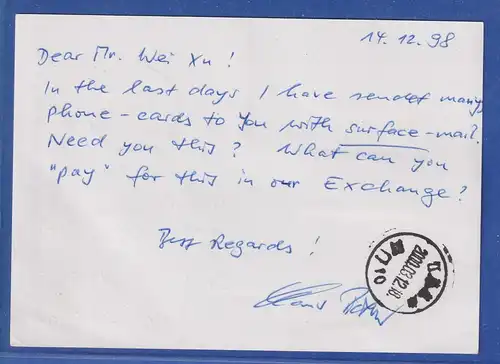 14.12.98
Dear Mr. Wei Xu!
In the last days I have sendet many
phone-cards to you with surface-mail.
Need you this? What can you
"pay" for this in our Exchange?
Best Regards!
2000.03.12.18